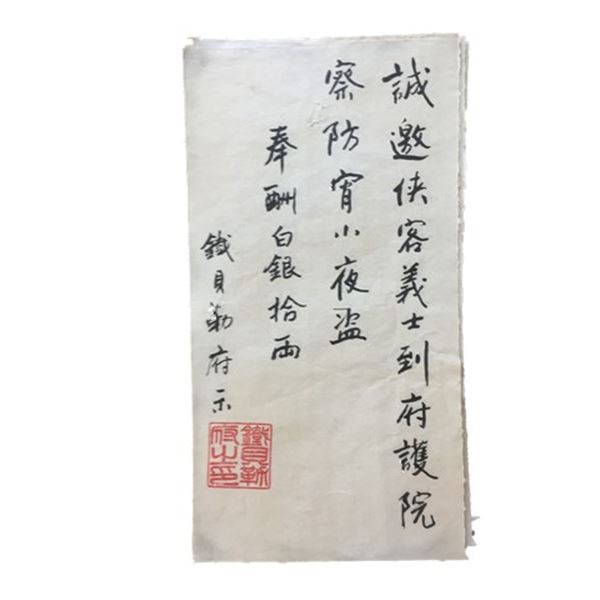 誠邀侠客義士到府護院
察防宵小夜盗
奉酬白銀拾両
鐵貝勒府示
鐵貝勒
府之印